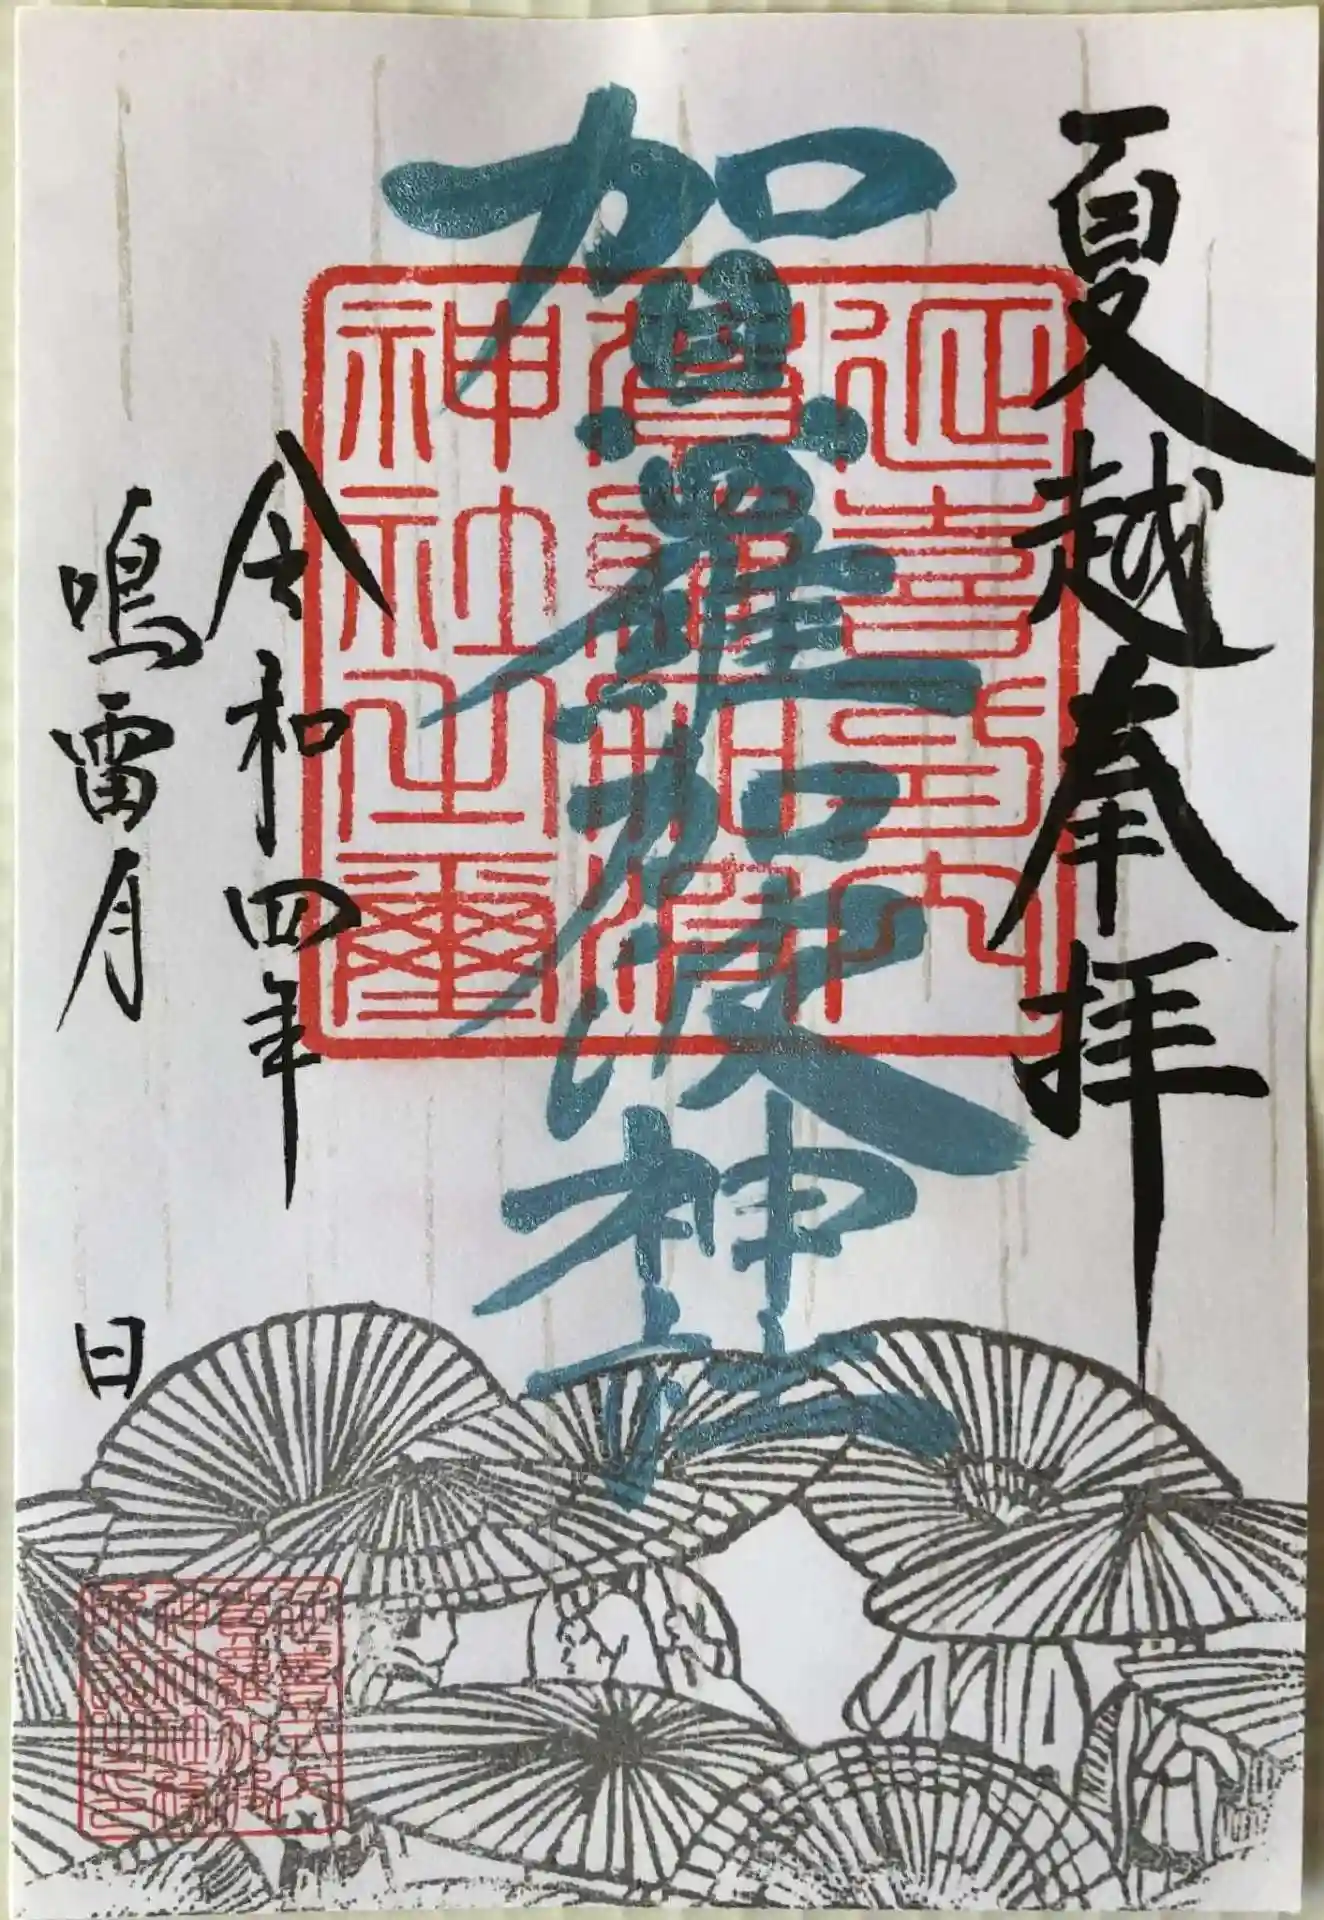 夏越奉拝
賀羅加波神社
延喜式内
賀羅加波
神社之璽
令和四年
鳴雷月
日